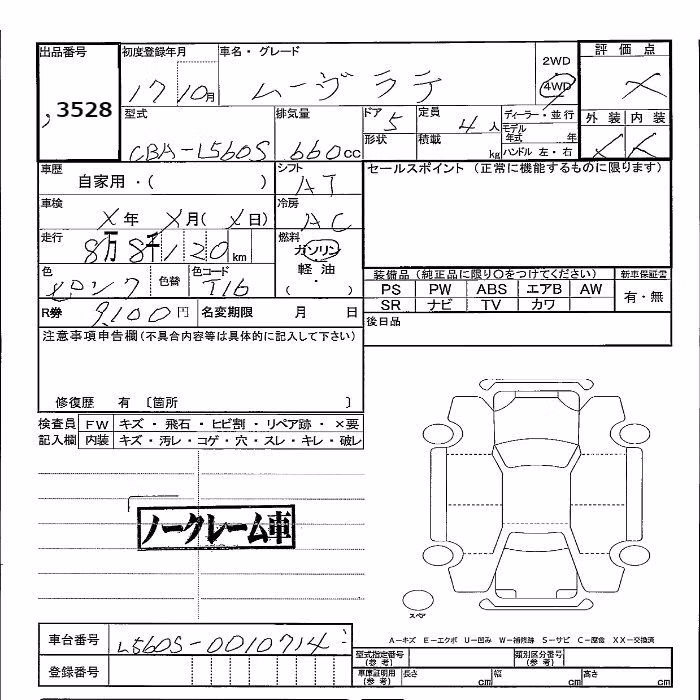 出品番号 初度登録年月 車名・グレード 2WD 評価点
3528 17 10月 ムーヴラテ 4WD ×
型式 排気量 ドア 5 定員 4人 ディーラー・並行 外装 内装
CBA-L560S 660cc 形状 積載 kg モデル年式 年 ハンドル 左・右 × ×
車歴 シフト セールスポイント (正常に機能するものに限ります)
自家用・( ) AT
車検 冷房
×年 ×月(×日) AC
走行 燃料
8万8千120km ガソリン
色 色替 色コード 軽油 装備品 (純正品に限り○をつけてください) 新車保証書
T16 ( ・ ) PS PW ABS エアB AW 有・無
R券 9,100円 名変期限 月 日 SR ナビ TV カワ
注意事項申告欄(不具合内容等は具体的に記入して下さい) 後日品
修復歴 有 〔箇所 〕
検査員 FW キズ・飛石・ヒビ割・リペア跡・×要
記入欄 内装 キズ・汚レ・コゲ・穴・スレ・キレ・破レ
ノークレーム車
スペア
A-キズ E-エクボ U-凹み W-補修跡 S-サビ C-腐食 XX-交換済
車台番号 L560S-0010714
型式指定番号(参考) 類別区分番号(参考)
登録番号 車庫証明用(参考) 長さ cm 幅 cm 高さ cm